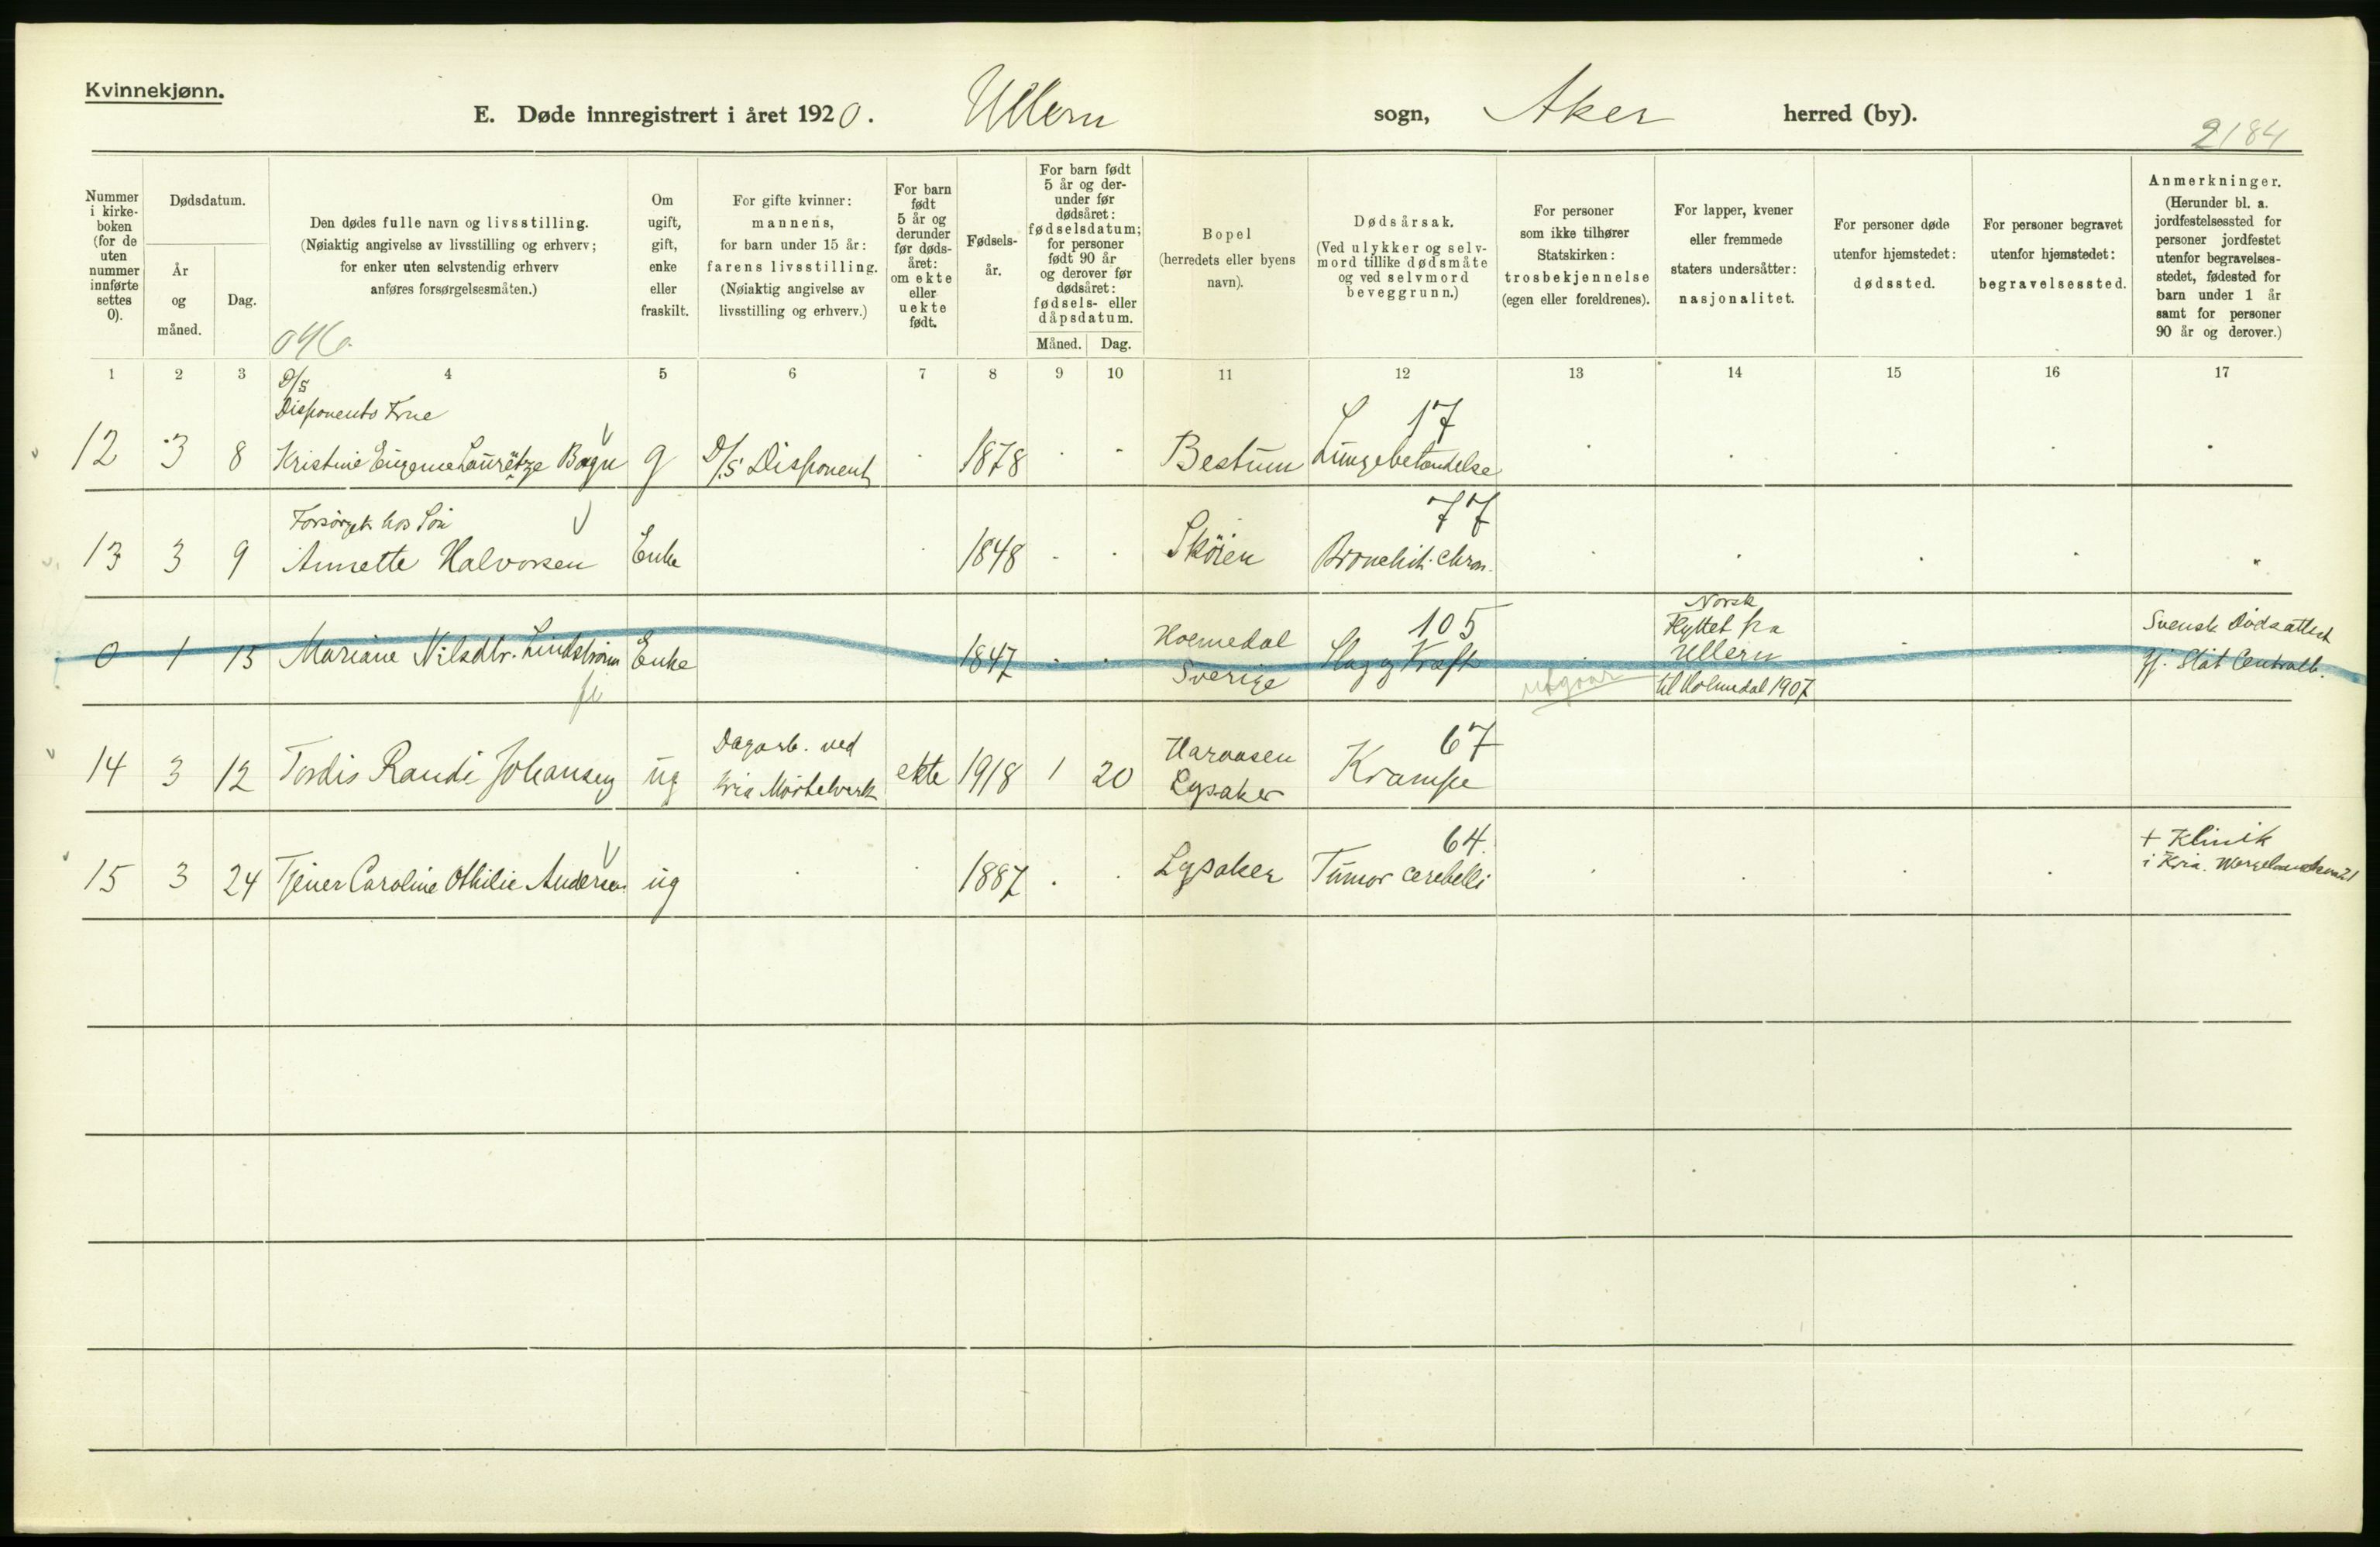 Kvinnekjønn.
E. Døde innregistrert i året 1920. Ullern sogn, Aker herred (by).
2184
Nummer i kirke- boken (for de uten nummer innførte settes 0).
Dødsdatum.
År og måned.
Dag.
Den dødes fulle navn og livsstilling.
(Nøiaktig angivelse av livsstilling og erhverv;
for enker uten selvstendig erhverv
anføres forsørgelsesmåten.)
Om ugift, gift, enke eller fraskilt.
For gifte kvinner:
mannens,
for barn under 15 år:
farens livsstilling.
(Nøiaktig angivelse av
livsstilling og erhverv.)
For barn født 5 år og derunder før døds- året: om ekte eller uekte født.
Fødsels- år.
For barn født 5 år og der- under før dødsåret: fødselsdatum; for personer født 90 år og derover før dødsåret: fødsels- eller dåpsdatum.
Måned. Dag.
Bopel
(herredets eller byens
navn).
Dødsårsak.
(Ved ulykker og selv-
mord tillike dødsmåte
og ved selvmord
beveggrunn.)
For personer
som ikke tilhører
Statskirken:
trosbekjennelse
(egen eller foreldrenes).
For lapper, kvener
eller fremmede
staters undersåtter:
nasjonalitet.
For personer døde
utenfor hjemstedet:
dødssted.
For personer begravet
utenfor hjemstedet:
begravelsessted.
Anmerkninger.
(Herunder bl. a.
jordfestelsessted for
personer jordfestet
utenfor begravelses-
stedet, fødested for
barn under 1 år
samt for personer
90 år og derover.)
1 2 3 4 5 6 7 8 9 10 11 12 13 14 15 16 17
D/s
Disponents Frue 17
12 3 8 Kristine Eugenie Lauretze Bogn g D/S Disponent 1878 Bestum Lungebetændelse
Forsörget hos Sön 77
13 3 9 Annette Halvorsen Enke 1848 Sköien Bronchit. chron.
0 1 13 Mariane Nilsdtr. Lindström Enke 1847 Holmedal Sverige 105 Slag Norsk Flyttet fra Ullern til Holmedal 1907 Svensk Dödsattest
utgaar
14 3 12 Tordis Randi Johansen ug Dagarb. ved Kria Mörtelverk ekte 1918 1 20 Lysaker 67 Krampe
15 3 24 Tjener Caroline Othilie Andersen ug 1887 Lysaker 64. Tumor cerebelli + Klinik i Kria.